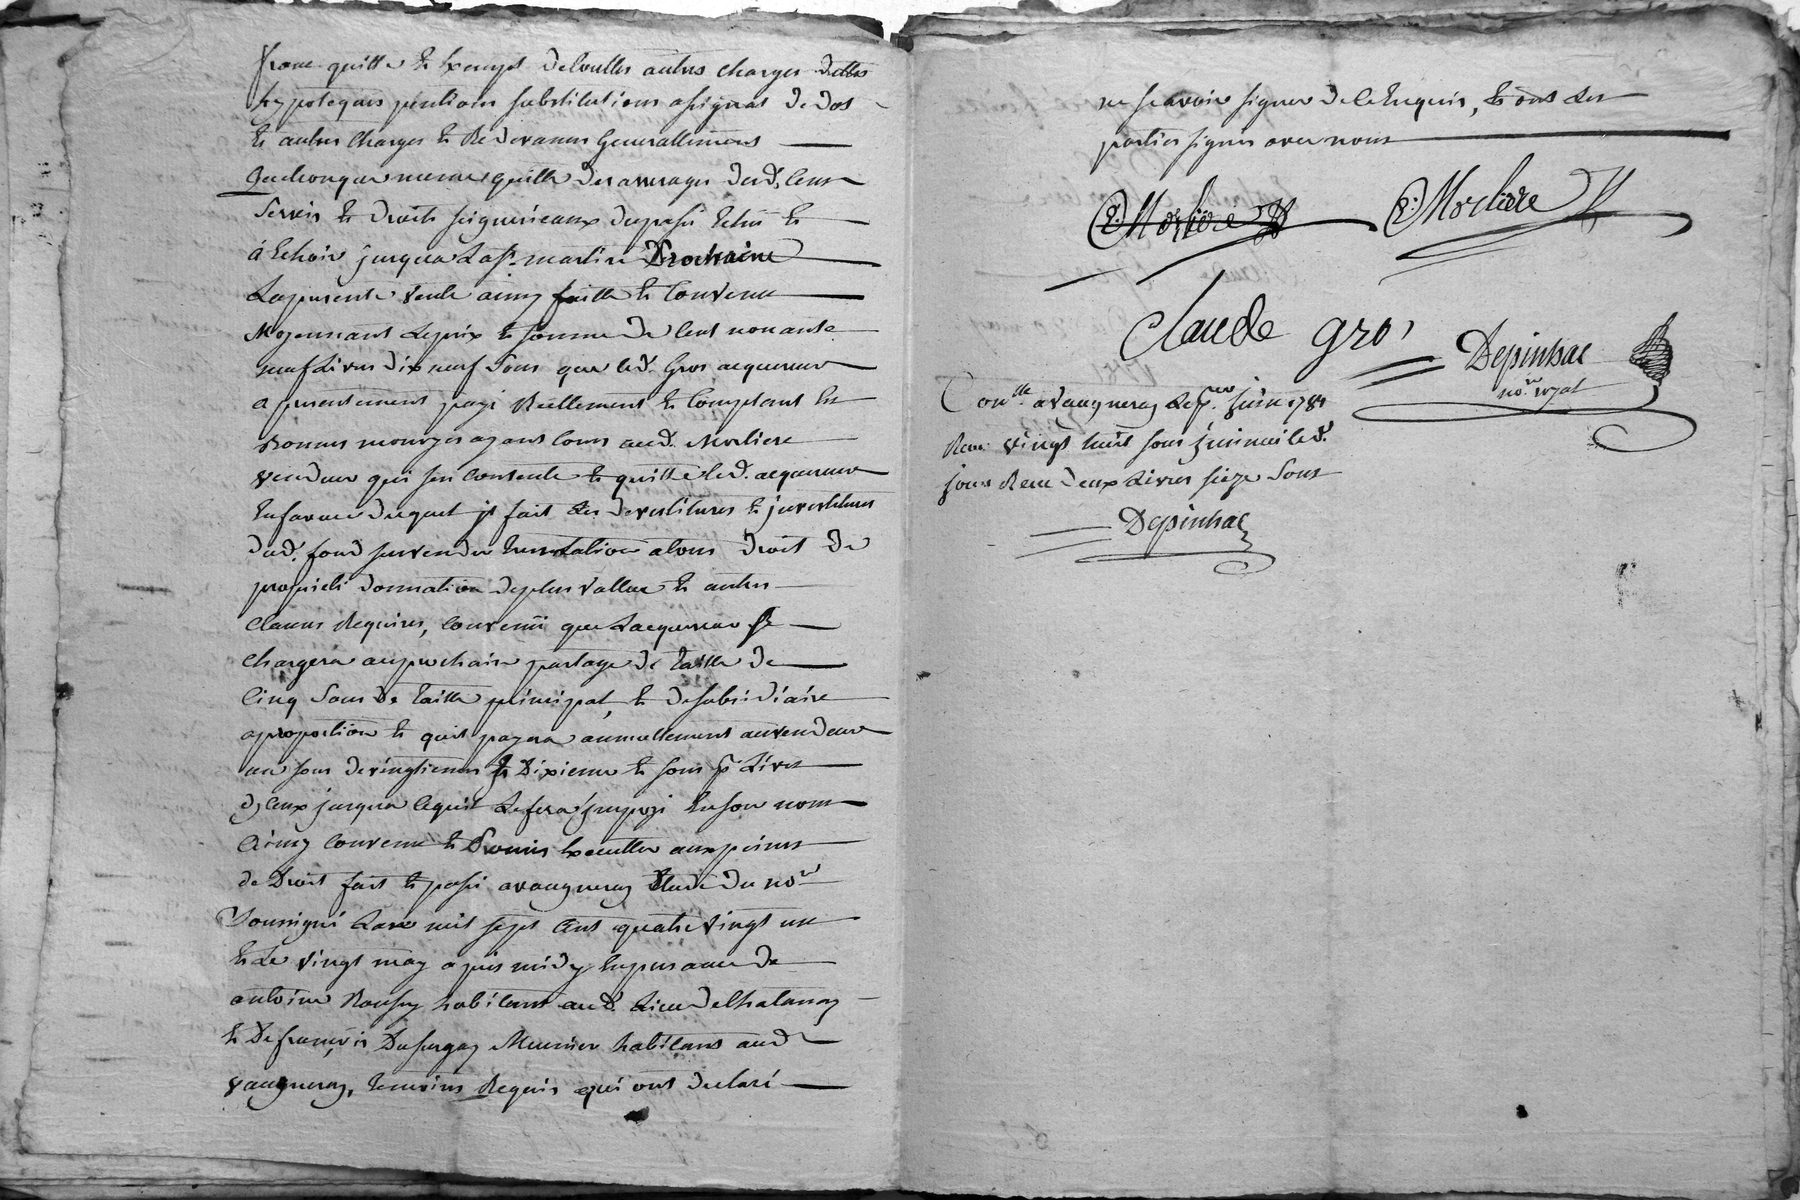 franc quitte et Exempt de touttes autres charges dettes
hypoteques pentions substitutions assignat de dot
et autres Charges et Redevances Generallement
quelconques meme quitte des arrerages desd. Cens
Servis et droits seigneuriaux du passé Echu et
à Echoir jusqua La st. martin Prochaine
La presente vente ainsy faitte et Convenue
Moyennant Le prix et somme de Cent nonante
neuf Livres dix neuf Sous que led. Gros acquereur
a presentement payé Réellement et Comptant En
Bonnes monoyes ayant Cours aud. Morliere
vendeur qui s'en Contente et quitte led. acquereur
En faveur duquel il fait Les devestitures et investitures
dud. fond survendu translation de tous droit de
proprieté donnation de plus vallue et autres
Clauses Requises, Convenu que Lacquereur se
Chargera au prochain partage de taille de
Cinq Sous de taille principal, et de subsidiaire
a proportion et quil payera annuellement au vendeur
un sous de vingtiemes et Dixieme et sous pr Livre
dyceux jusqua ce quil Le fera jmpozé En son nom
Ainsy Convenu et Promis Executter aux peines
de Droit fait et passé a vaugneray Etude du nore
Soussigné Lan mil sept Cent quatre vingt un
et Le vingt may apres midy En presance de
antoine habitant aud. Lieu de Chalanay
et De françois Dufurgay Meunier habitant aud.
vaugneray, temoins Requis qui ont declaré
ne scavoir signer de ce Enquis, et ont Les
parties signés avec nous
C: Morliere C: Morliere
Claude gros
Depinhac
nore royal
Conlle a vaugneray Le pr. juin 1781
Recu vingt huit sous jnsinué led.
jour Recu deux Livres seize Sous
Depinhac